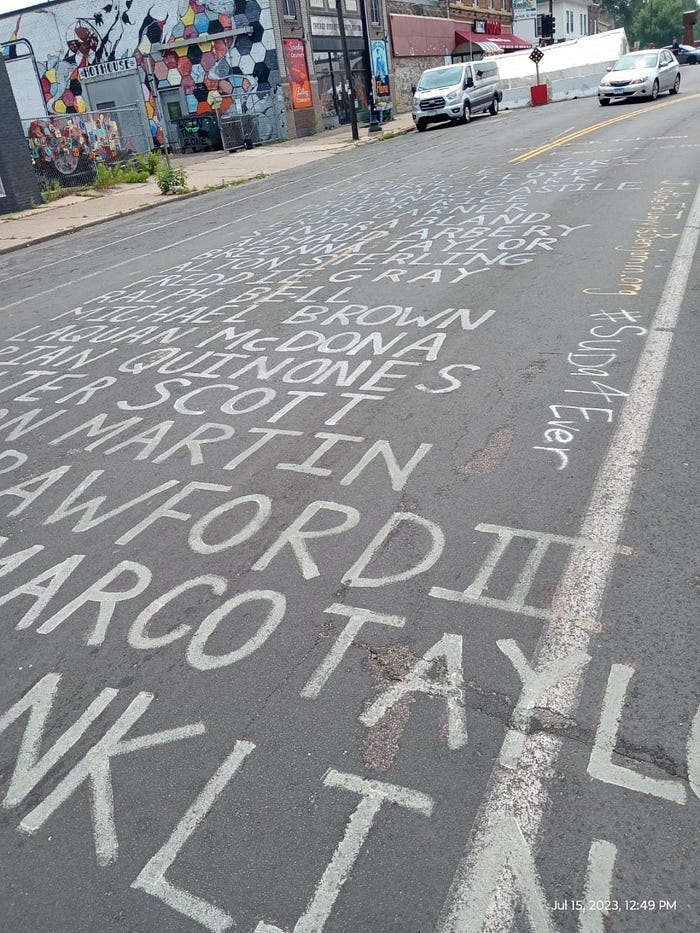 HOTHOUSE
CASTILE
GARNER
SANDRA BLAND
ARBERY
BREONNA TAYLOR
ALTON STERLING
FREDDIE GRAY
RALPH BELL
MICHAEL BROWN
LAQUAN McDONA
RIAN QUINONES
TER SCOTT
ON MARTIN
RAWFORD III
MARCO TAYLO
NKLIN
#SUDA4Ever
Jul 15, 2023, 12:49 PM